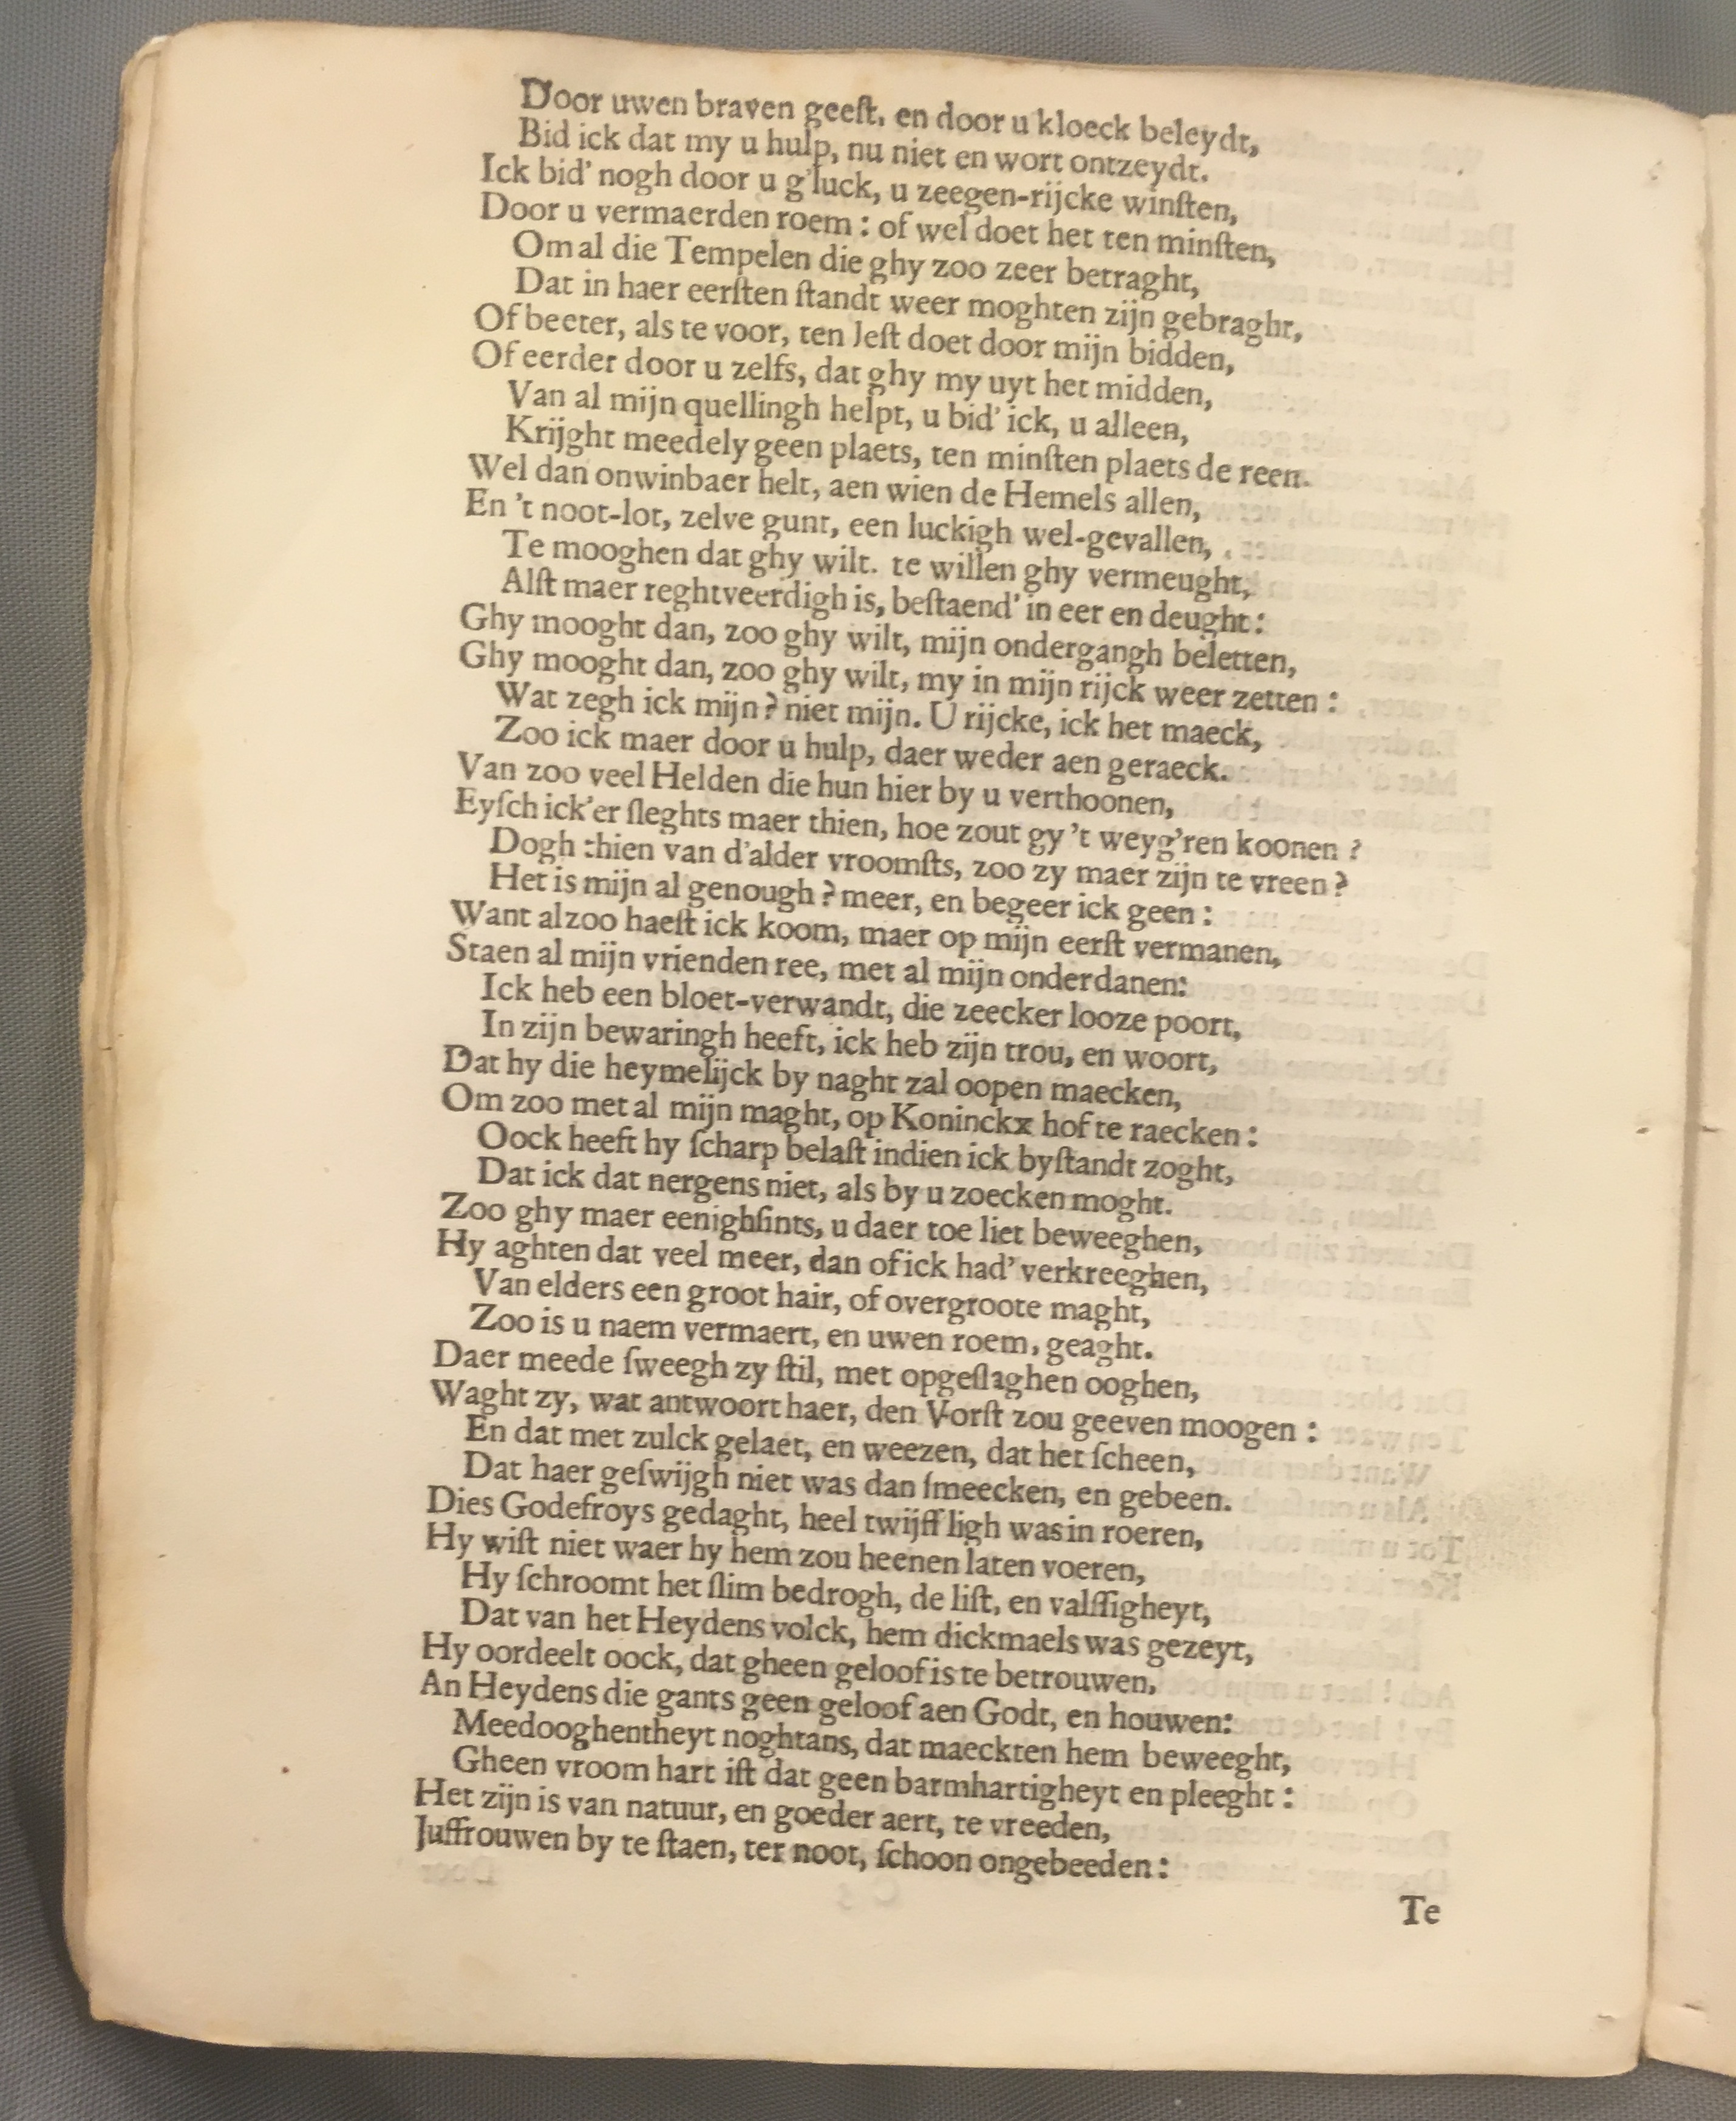 Door uwen braven geeſt, en door u kloeck beleydt,
Bid ick dat my u hulp, nu niet en wort ontzeydt.
Ick bid' nogh door u g'luck, u zeegen-rijcke winſten,
Door u vermaerden roem : of wel doet het ten minſten,
Om al die Tempelen die ghy zoo zeer betraght,
Dat in haer eerſten ſtandt weer moghten zijn gebraght,
Of beeter, als te voor, ten leſt doet door mijn bidden,
Of eerder door u zelfs, dat ghy my uyt het midden,
Van al mijn quellingh helpt, u bid' ick, u alleen,
Krijght meedely geen plaets, ten minſten plaets de reen.
Wel dan onwinbaer helt, aen wien de Hemels allen,
En 't noot-lot, zelve gunt, een luckigh wel-gevallen,
Te mooghen dat ghy wilt. te willen ghy vermeught,
Alſt maer reghtveerdigh is, beſtaend' in eer en deught :
Ghy mooght dan, zoo ghy wilt, mijn ondergangh beletten,
Ghy mooght dan, zoo ghy wilt, my in mijn rijck weer zetten :
Wat zegh ick mijn ? niet mijn. U rijcke, ick het maeck,
Zoo ick maer door u hulp, daer weder aen geraeck.
Van zoo veel Helden die hun hier by u verthoonen,
Eyſch ick'er ſleghts maer thien, hoe zout gy 't weyg'ren koonen ?
Dogh thien van d'alder vroomſts, zoo zy maer zijn te vreen ?
Het is mijn al genough ? meer, en begeer ick geen :
Want alzoo haeſt ick koom, maer op mijn eerſt vermanen,
Staen al mijn vrienden ree, met al mijn onderdanen:
Ick heb een bloet-verwandt, die zeecker looze poort,
In zijn bewaringh heeft, ick heb zijn trou, en woort,
Dat hy die heymelijck by naght zal oopen maecken,
Om zoo met al mijn maght, op Koninckx hof te raecken :
Oock heeft hy ſcharp belaſt indien ick byſtandt zoght,
Dat ick dat nergens niet, als by u zoecken moght.
Zoo ghy maer eenighſints, u daer toe liet beweeghen,
Hy aghten dat veel meer, dan of ick had' verkreeghen,
Van elders een groot hair, of overgroote maght,
Zoo is u naem vermaert, en uwen roem, geaght.
Daer meede ſweegh zy ſtil, met opgeſlaghen ooghen,
Waght zy, wat antwoort haer, den Vorſt zou geeven moogen :
En dat met zulck gelaet, en weezen, dat het ſcheen,
Dat haer geſwijgh niet was dan ſmeecken, en gebeen.
Dies Godefroys gedaght, heel twijff ligh was in roeren,
Hy wiſt niet waer hy hem zou heenen laten voeren,
Hy ſchroomt het ſlim bedrogh, de liſt, en valſſigheyt,
Dat van het Heydens volck, hem dickmaels was gezeyt,
Hy oordeelt oock, dat gheen geloof is te betrouwen,
An Heydens die gants geen geloof aen Godt, en houwen:
Meedooghentheyt noghtans, dat maeckten hem beweeght,
Gheen vroom hart iſt dat geen barmhartigheyt en pleeght :
Het zijn is van natuur, en goeder aert, te vreeden,
Juffrouwen by te ſtaen, ter noot, ſchoon ongebeeden :
Te